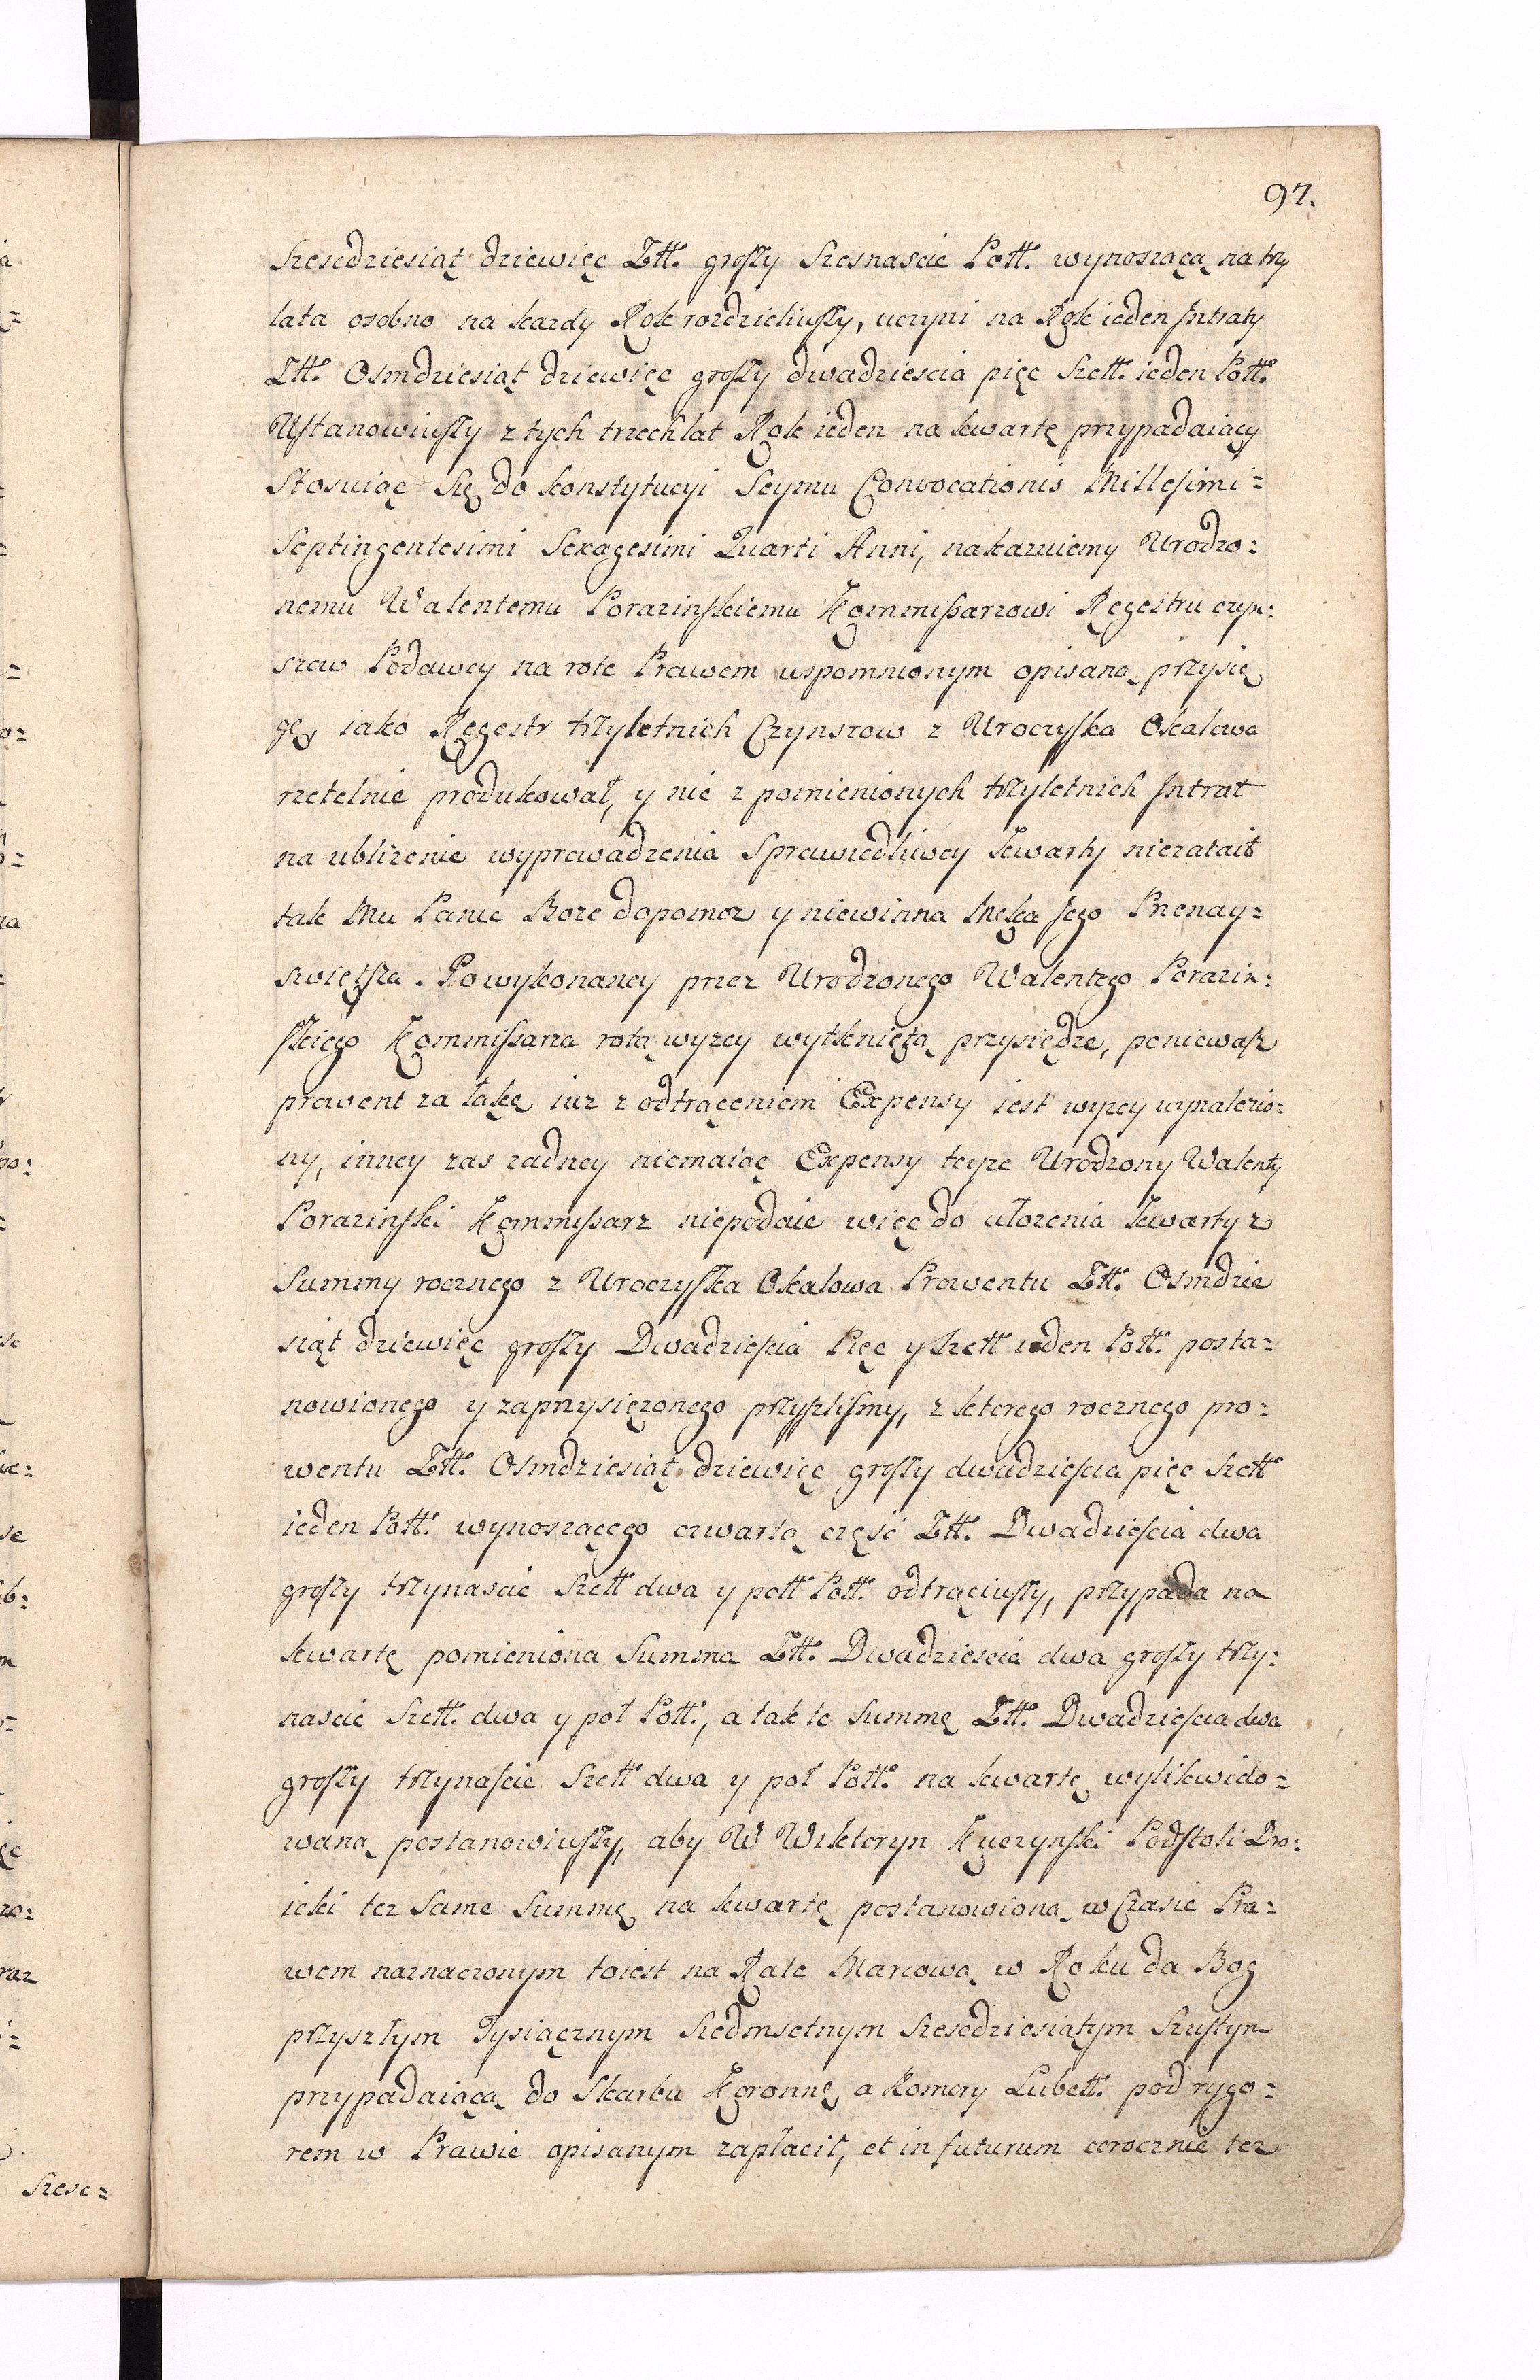 97.
Szescdziesiąt dziewięc Złł. groszy Szesnascie Poll. wynoszącą na trzy
lata osobno na kazdy Rok rozdzieliwszy, uczyni na Rok ieden Intraty
Złł. Osmdziesiąt dziewięc groszy dwadziescia pięc Szell. ieden Poll.
Ustanowiwszy z tych trzech lat Rok ieden na kwartę przypadaiący
Stosuiąc Się do konstytucyi Seymu Convocationis Millesimi=
Septingentesimi Sexagesimi Quarti Anni, nakazuiemy Urodzo=
nemu Walentemu Porazinskiemu Kommissarzowi Regestru czyn=
szow Podawcy na rote Prawem wspomnionym opisaną przysię
gę, iako Regestr trzyletnich Czynszow z Uroczyska Okalewa
rzetelnie produkował, y nic z pomienionych trzyletnich Intrat
na ublizenie wyprowadzenia Sprawiedliwey kwarty niezataił
tak Mu Panie Boze dopomoz y niewinna Męka Jego Przenay=
swiętsza. Po wykonaney przez Urodzonego Walentego Porazin=
skiego Kommissarza rotą wyzey wytkniętą przysiędze, poniewasz
prowent za łąkę iuz z odtrąceniem Expensy iest wyzey wynalezio=
ny, inney zas zadney niemaiąc Expensy teyze Urodzony Walenty
Porazinski Kommissarz niepodaie więc do ułozenia kwarty z
Summy rocznego z Uroczyska Okalowa Prowentu Złł. Osmdzie
siąt dziewięc groszy Dwadziescia Pięc y Szell ieden Poll. posta=
nowionego y zaprzysięzonego przyszlismy, z ktorego rocznego pro=
wentu Złł. Osmdziesiąt dziewięc groszy dwadziescia pięc Szell
ieden Poll. wynoszącego czwartą częsć Złł. Dwadziescia dwa
groszy trzynascie Szell dwa y poll Poll. odtrąciwszy, przypada na
kwartę pomieniona Summa Złł. Dwadziescia dwa groszy trzy=
nascie Szell. dwa y poł Poll., a tak te Summę Złł. Dwadziescia dwa
groszy trzynascie Szell dwa y poł Poll. na kwartę wylikwido=
waną postanowiwszy, aby W Wiktoryn Kuczynski Podstoli Dro=
icki tez Same Summę na kwartę postanowioną w Czasie Pra=
wem naznaczonym toiest na Rate Marcową w Roku da Bog
przyszłym Tysiącznym Siedmsetnym Szescdziesiątym Szustym
przypadaiącą do Skarbu Koronne, a Komory Lubell. pod rygo=
rem w Prawie opisanym zapłacił, et in futurum corocznie tez